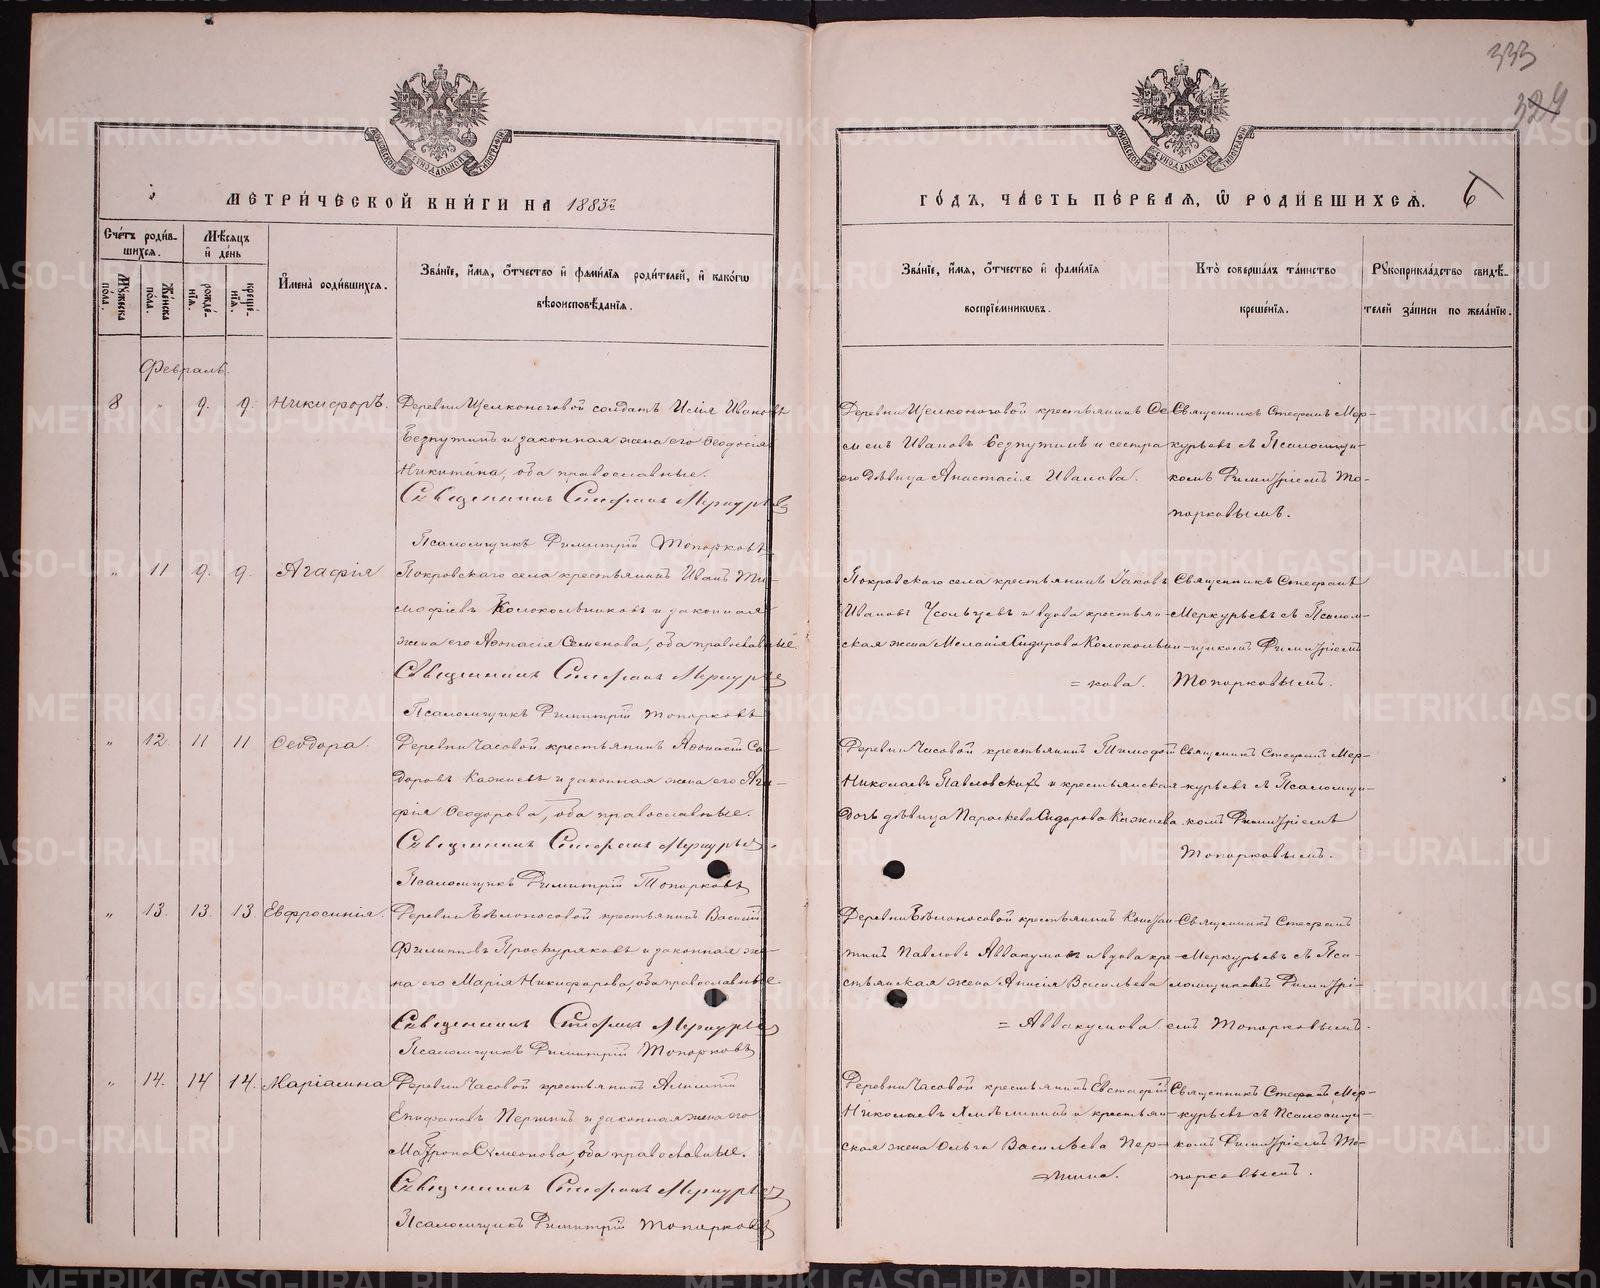 333
324
МЕТРИ́ЧЕСКОЙ КНИ́ГИ НА 1883й
ГО́ДЪ, ЧА́СТЬ ПЕ́РВАЯ, Ѡ РОДИ́ВШИХСЯ.
6
Сче́тъ роди́в-
шихся.
Мѣ́сяцъ
и҆ де́нь
Мꙋ́жеска
пола.
Же́нска
по́ла.
рожде́-
нїя.
креще́-
нїя.
И҆мена̀ роди́вшихся.
Зва́нїе, и҆́мя, ѻ҆́тчество и҆ фами́лїя роди́телей, и҆ како́гѡ
вѣроисповѣ́данїя.
Зва́нїе, и҆́мя, ѻ҆́тчество и҆ фами́лїя
воспрїе́мникѡвъ.
Кто̀ соверша́лъ та́инство
креще́нїя.
Рꙋкоприкла́дство свидѣ́-
телей за́писи по жела́нїю.
Февраль.
8 " 9. 9. Никифоръ.
Деревни Щелконоговой солдатъ Исаія Ивановъ
Безпутинъ и законная жена его Ѳеодосія
Никитина, оба православные.
Священникъ Стефанъ Меркурьевъ
Псаломщикъ Димитрій Топорковъ
Деревни Щелконоговой крестьянинъ Се-
менъ Ивановъ Безпутинъ и сестра
его дѣвица Анастасія Иванова.
Священникъ Стефанъ Мер-
курьевъ съ Псаломщи-
комъ Димитріемъ То-
порковымъ.
" 11 9. 9. Агафія
Покровскаго села крестьянинъ Иванъ Ти-
моѳіевъ Колокольниковъ и законная
жена его Аѳанасія Семенова, оба православные
Священникъ Стефанъ Меркурьевъ
Псаломщикъ Димитрій Топорковъ
Покровскаго села крестьянинъ Іаковъ
Ивановъ Усольцевъ и вдова крестьян-
ская жена Меланія Сидорова Колокольни-
= кова.
Священникъ Стефанъ
Меркурьевъ съ Псалом-
щикомъ Димитріемъ
Топорковымъ.
" 12. 11 11 Ѳеодора.
Деревни Часовой крестьянинъ Аѳонасій Си-
доровъ Кажневъ и законная жена его Ага-
фія Ѳеодорова, оба православные.
Священникъ Стефанъ Меркурьевъ
Псаломщикъ Димитрій Топорковъ
Деревни Часовой крестьянинъ Тимоѳей
Николаевъ Павловскихъ и крестьянская
дочь дѣвица Параскева Сидорова Кажнева.
Священникъ Стефанъ Мер-
курьевъ съ Псаломщи-
комъ Димитріемъ
Топорковымъ.
" 13. 13. 13 Евфросинія.
Деревни Бѣлоносовой крестьянинъ Василій
Филиповъ Проскуряковъ и законная же-
на его Марія Никифорова, оба православные
Священникъ Стефанъ Меркурьевъ
Псаломщикъ Димитрій Топорковъ
Деревни Бѣлоносовой крестьянинъ Констан-
тинъ Павловъ Аввакумовъ и вдова кре-
стьянская жена Анисія Васильева
= Аввакумова.
Священникъ Стефанъ
Меркурьевъ съ Пса-
ломщикомъ Димитрі-
емъ Топорковымъ.
" 14. 14 14. Маріамна
Деревни Часовой крестьянинъ
Епифановъ Першинъ и законная жена его
Мавра Симеонова, оба православные.
Священникъ Стефанъ Меркурьевъ
Псаломщикъ Димитрій Топорковъ
Деревни Часовой крестьянинъ Евстафій
Николаевъ Хмѣлининъ и крестьян-
ская жена Ольга Васильева Пер-
= шина.
Священникъ Стефанъ Мер-
курьевъ съ Псаломщи-
комъ Димитріемъ То-
порковымъ.
METRIKI.GASO-URAL.RU